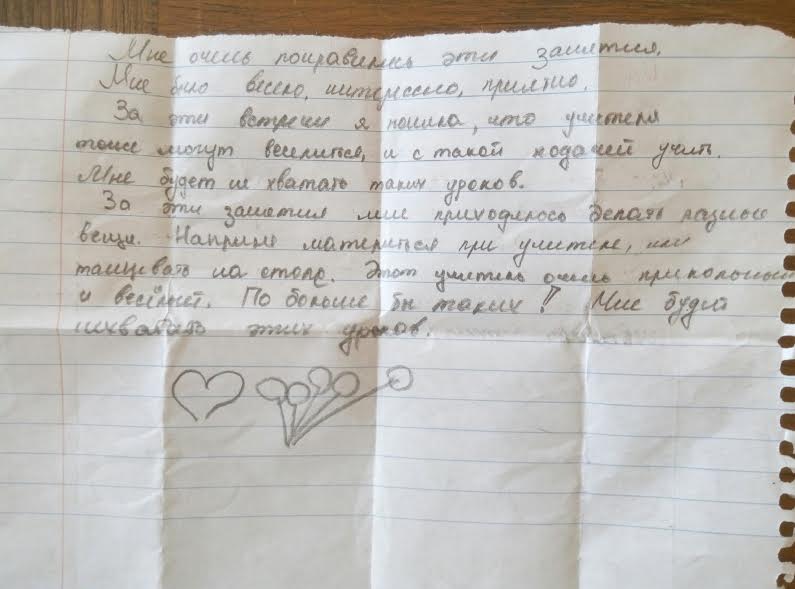 Мне очень понравились эти занятия.
Мне было весело, интересно, приятно.
За эти встречи я поняла, что учителя
тоже могут веселиться, и с такой подачей учить.
Мне будет не хватать таких уроков.
За эти занятия мне приходилось делать разные
вещи. Например материться при учителе, или
танцевать на столе. Этот учитель очень прикольный
и весёлый. По больше бы таких! Мне будет
нехватать этих уроков.